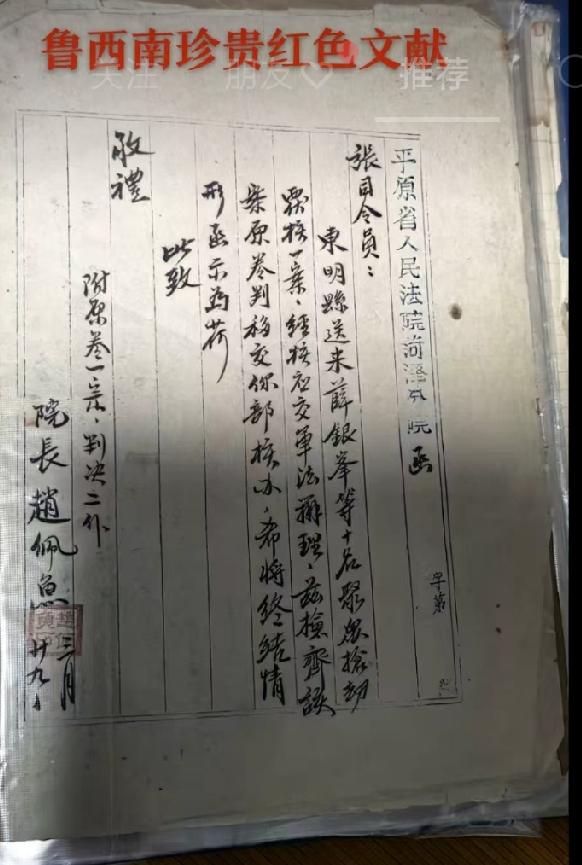 鲁西南珍贵红色文献
关注 朋友 推荐
平原省人民法院菏澤分院 函
字第
張司令員：
東明縣送来薛銀峯等十名聚眾搶劫
一案、經核应交軍法辦理、茲檢齊該
案原卷判移交你部核办、希將終結情
形函示為荷
此致
敬禮
附原卷一宗、判决二件
院長 趙佩
三月
廿九日